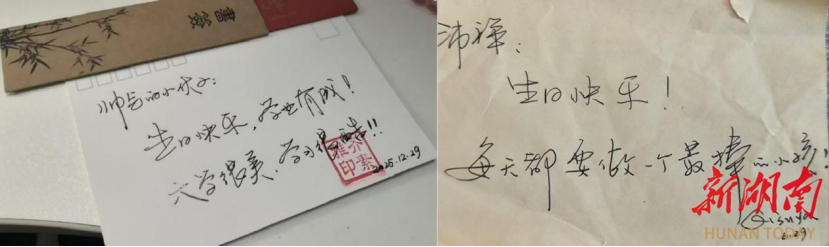 書簽
帅气的小伙子：
生日快乐，学业有成！
大学很美，学习很
雅齐
印素
2025.12.29
沛霖：
生日快乐！
每天都要做一个最棒的小孩！
新湖南
HUNAN TODAY